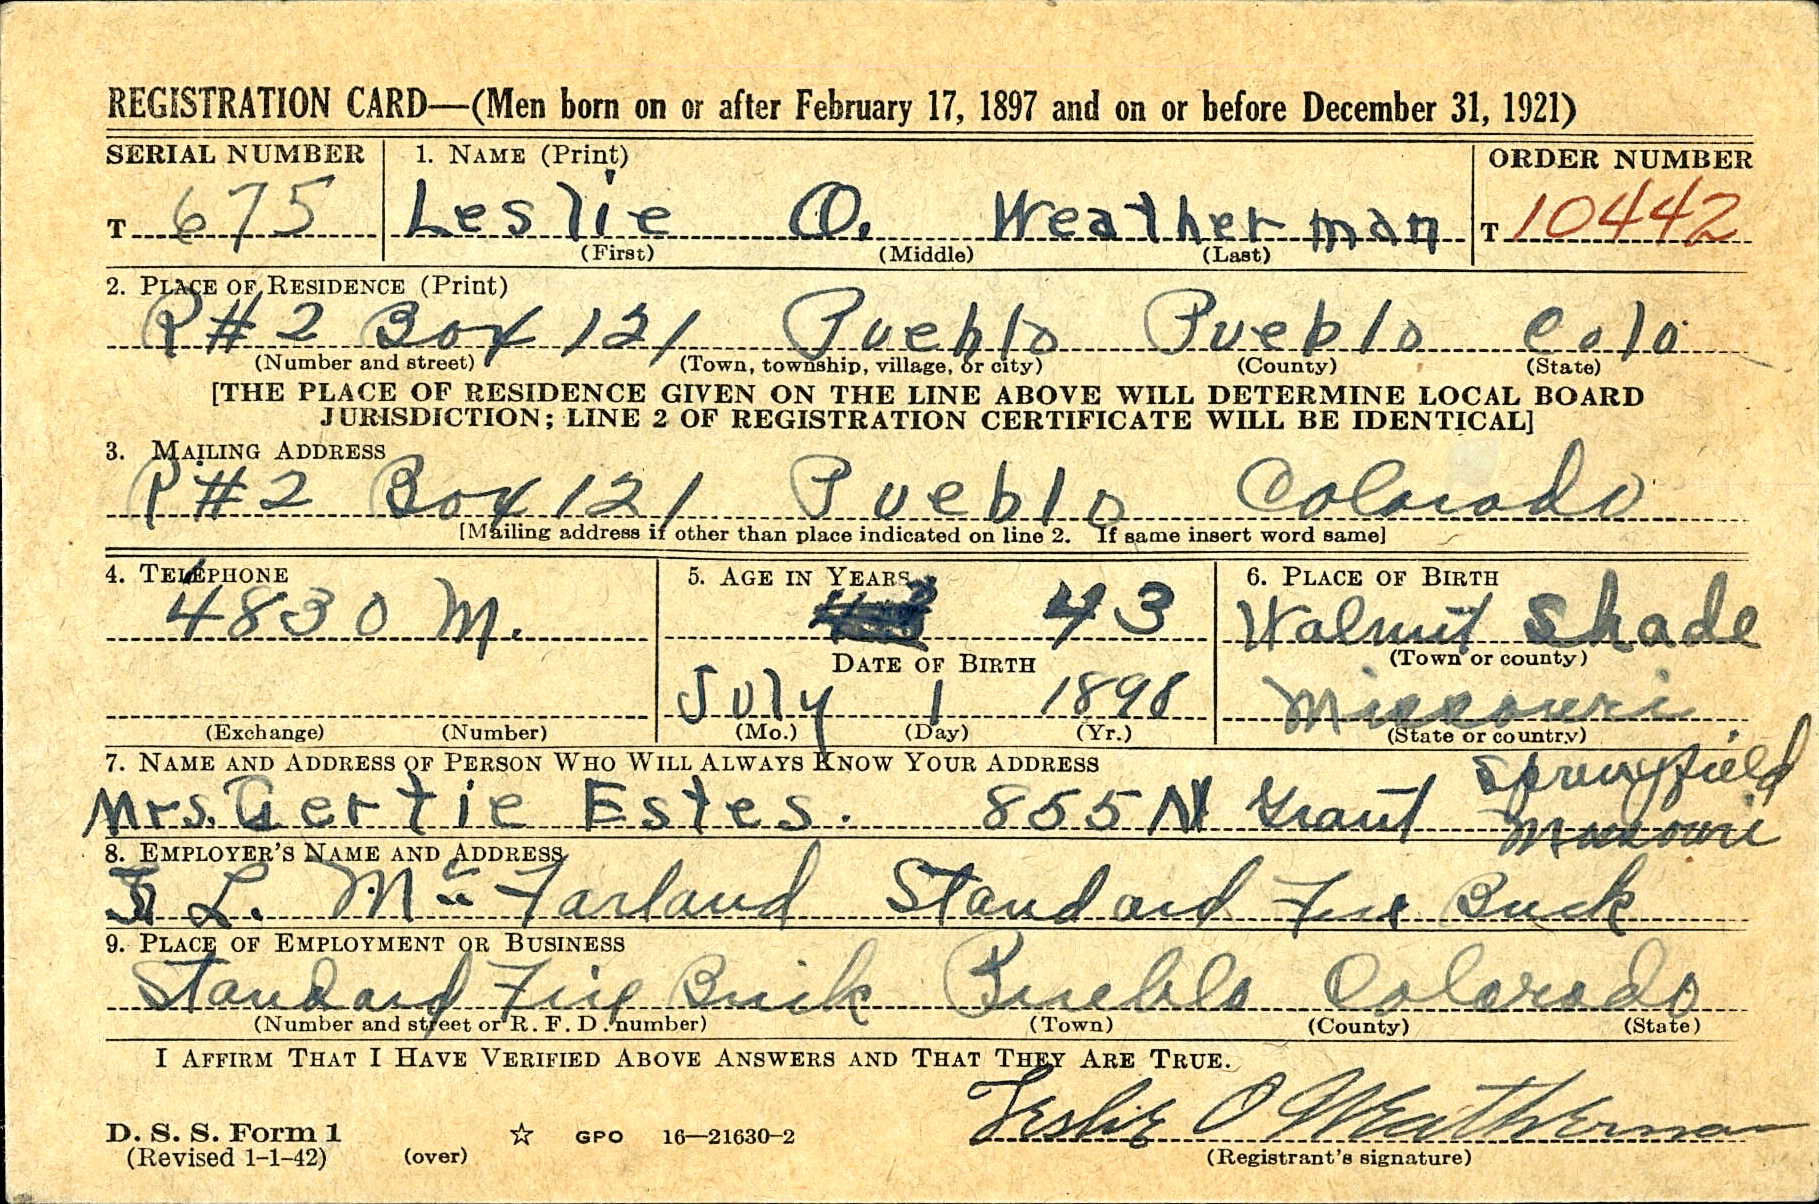 REGISTRATION CARD—(Men born on or after February 17, 1897 and on or before December 31, 1921)
SERIAL NUMBER 1. NAME (Print) ORDER NUMBER
T 675 Leslie O. Weatherman T 10442
(First) (Middle) (Last)
2. PLACE OF RESIDENCE (Print)
R#2 Box 121 Pueblo Pueblo Colo
(Number and street) (Town, township, village, or city) (County) (State)
[THE PLACE OF RESIDENCE GIVEN ON THE LINE ABOVE WILL DETERMINE LOCAL BOARD
JURISDICTION; LINE 2 OF REGISTRATION CERTIFICATE WILL BE IDENTICAL]
3. MAILING ADDRESS
R#2 Box 121 Pueblo Colorado
[Mailing address if other than place indicated on line 2. If same insert word same]
4. TELEPHONE 5. AGE IN YEARS 6. PLACE OF BIRTH
4830 M. 43 Walnut Shade
DATE OF BIRTH (Town or county)
July 1 1898 Missouri
(Exchange) (Number) (Mo.) (Day) (Yr.) (State or country)
7. NAME AND ADDRESS OF PERSON WHO WILL ALWAYS KNOW YOUR ADDRESS
Mrs. Gertie Estes. 855 N Grant Springfield
Missouri
8. EMPLOYER'S NAME AND ADDRESS
L. McFarland Standard Fire Brick
9. PLACE OF EMPLOYMENT OR BUSINESS
Standard Fire Brick Pueblo Colorado
(Number and street or R. F. D. number) (Town) (County) (State)
I AFFIRM THAT I HAVE VERIFIED ABOVE ANSWERS AND THAT THEY ARE TRUE.
Leslie O Weatherman
D. S. S. Form 1 GPO 16—21630-2
(Revised 1-1-42) (over) (Registrant's signature)